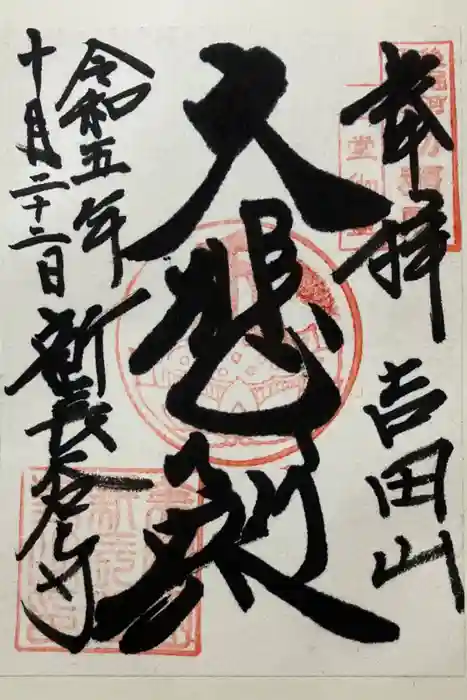 奉拝
吉田山
大悲殿
令和五年
十月二十二日
新長谷寺